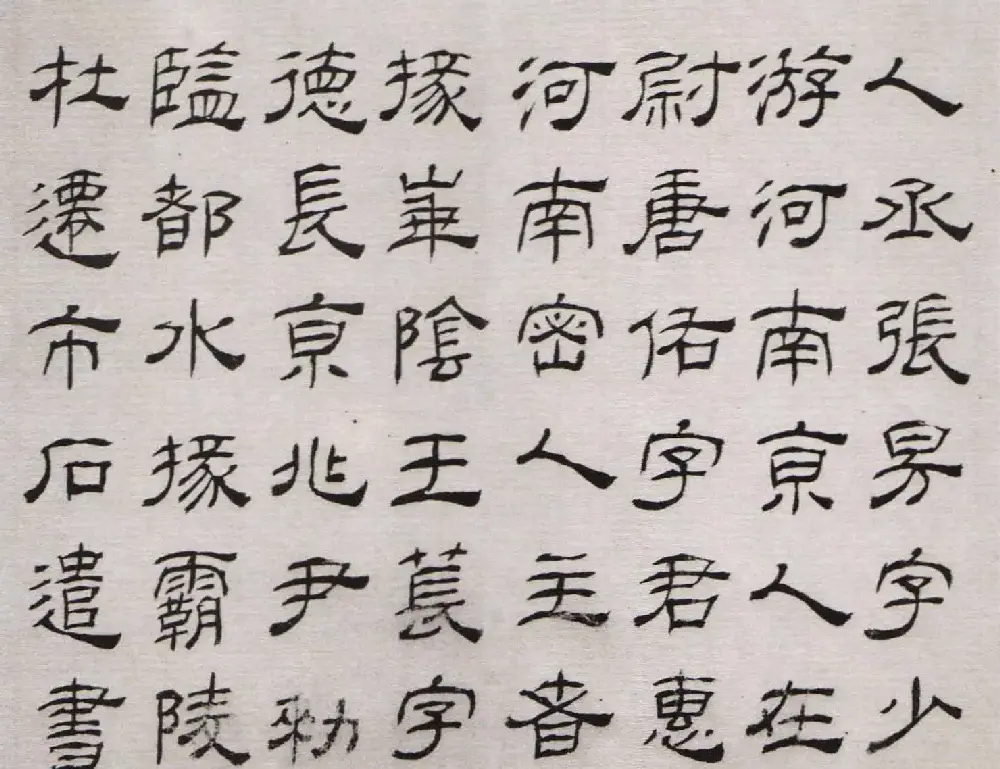 人丞張昉字少
游河南京人在
尉唐佑字君惠
河南密人主者
掾華陰王萇字
德長京兆尹勑
監都水掾霸陵
杜遷市石遣書